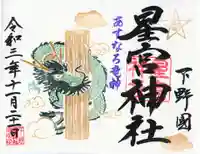 下野國
星宮神社
あすなろ龍神
令和二年十一月二十日